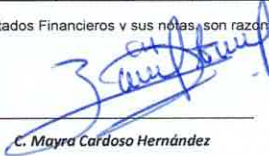 tados Financieros y sus notas, son razon
C. Mayra Cardoso Hernández